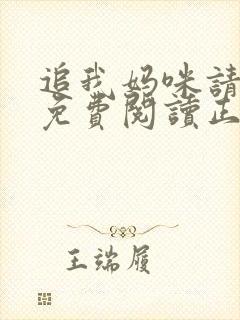 追我妈咪請
免費閱讀正
王端履